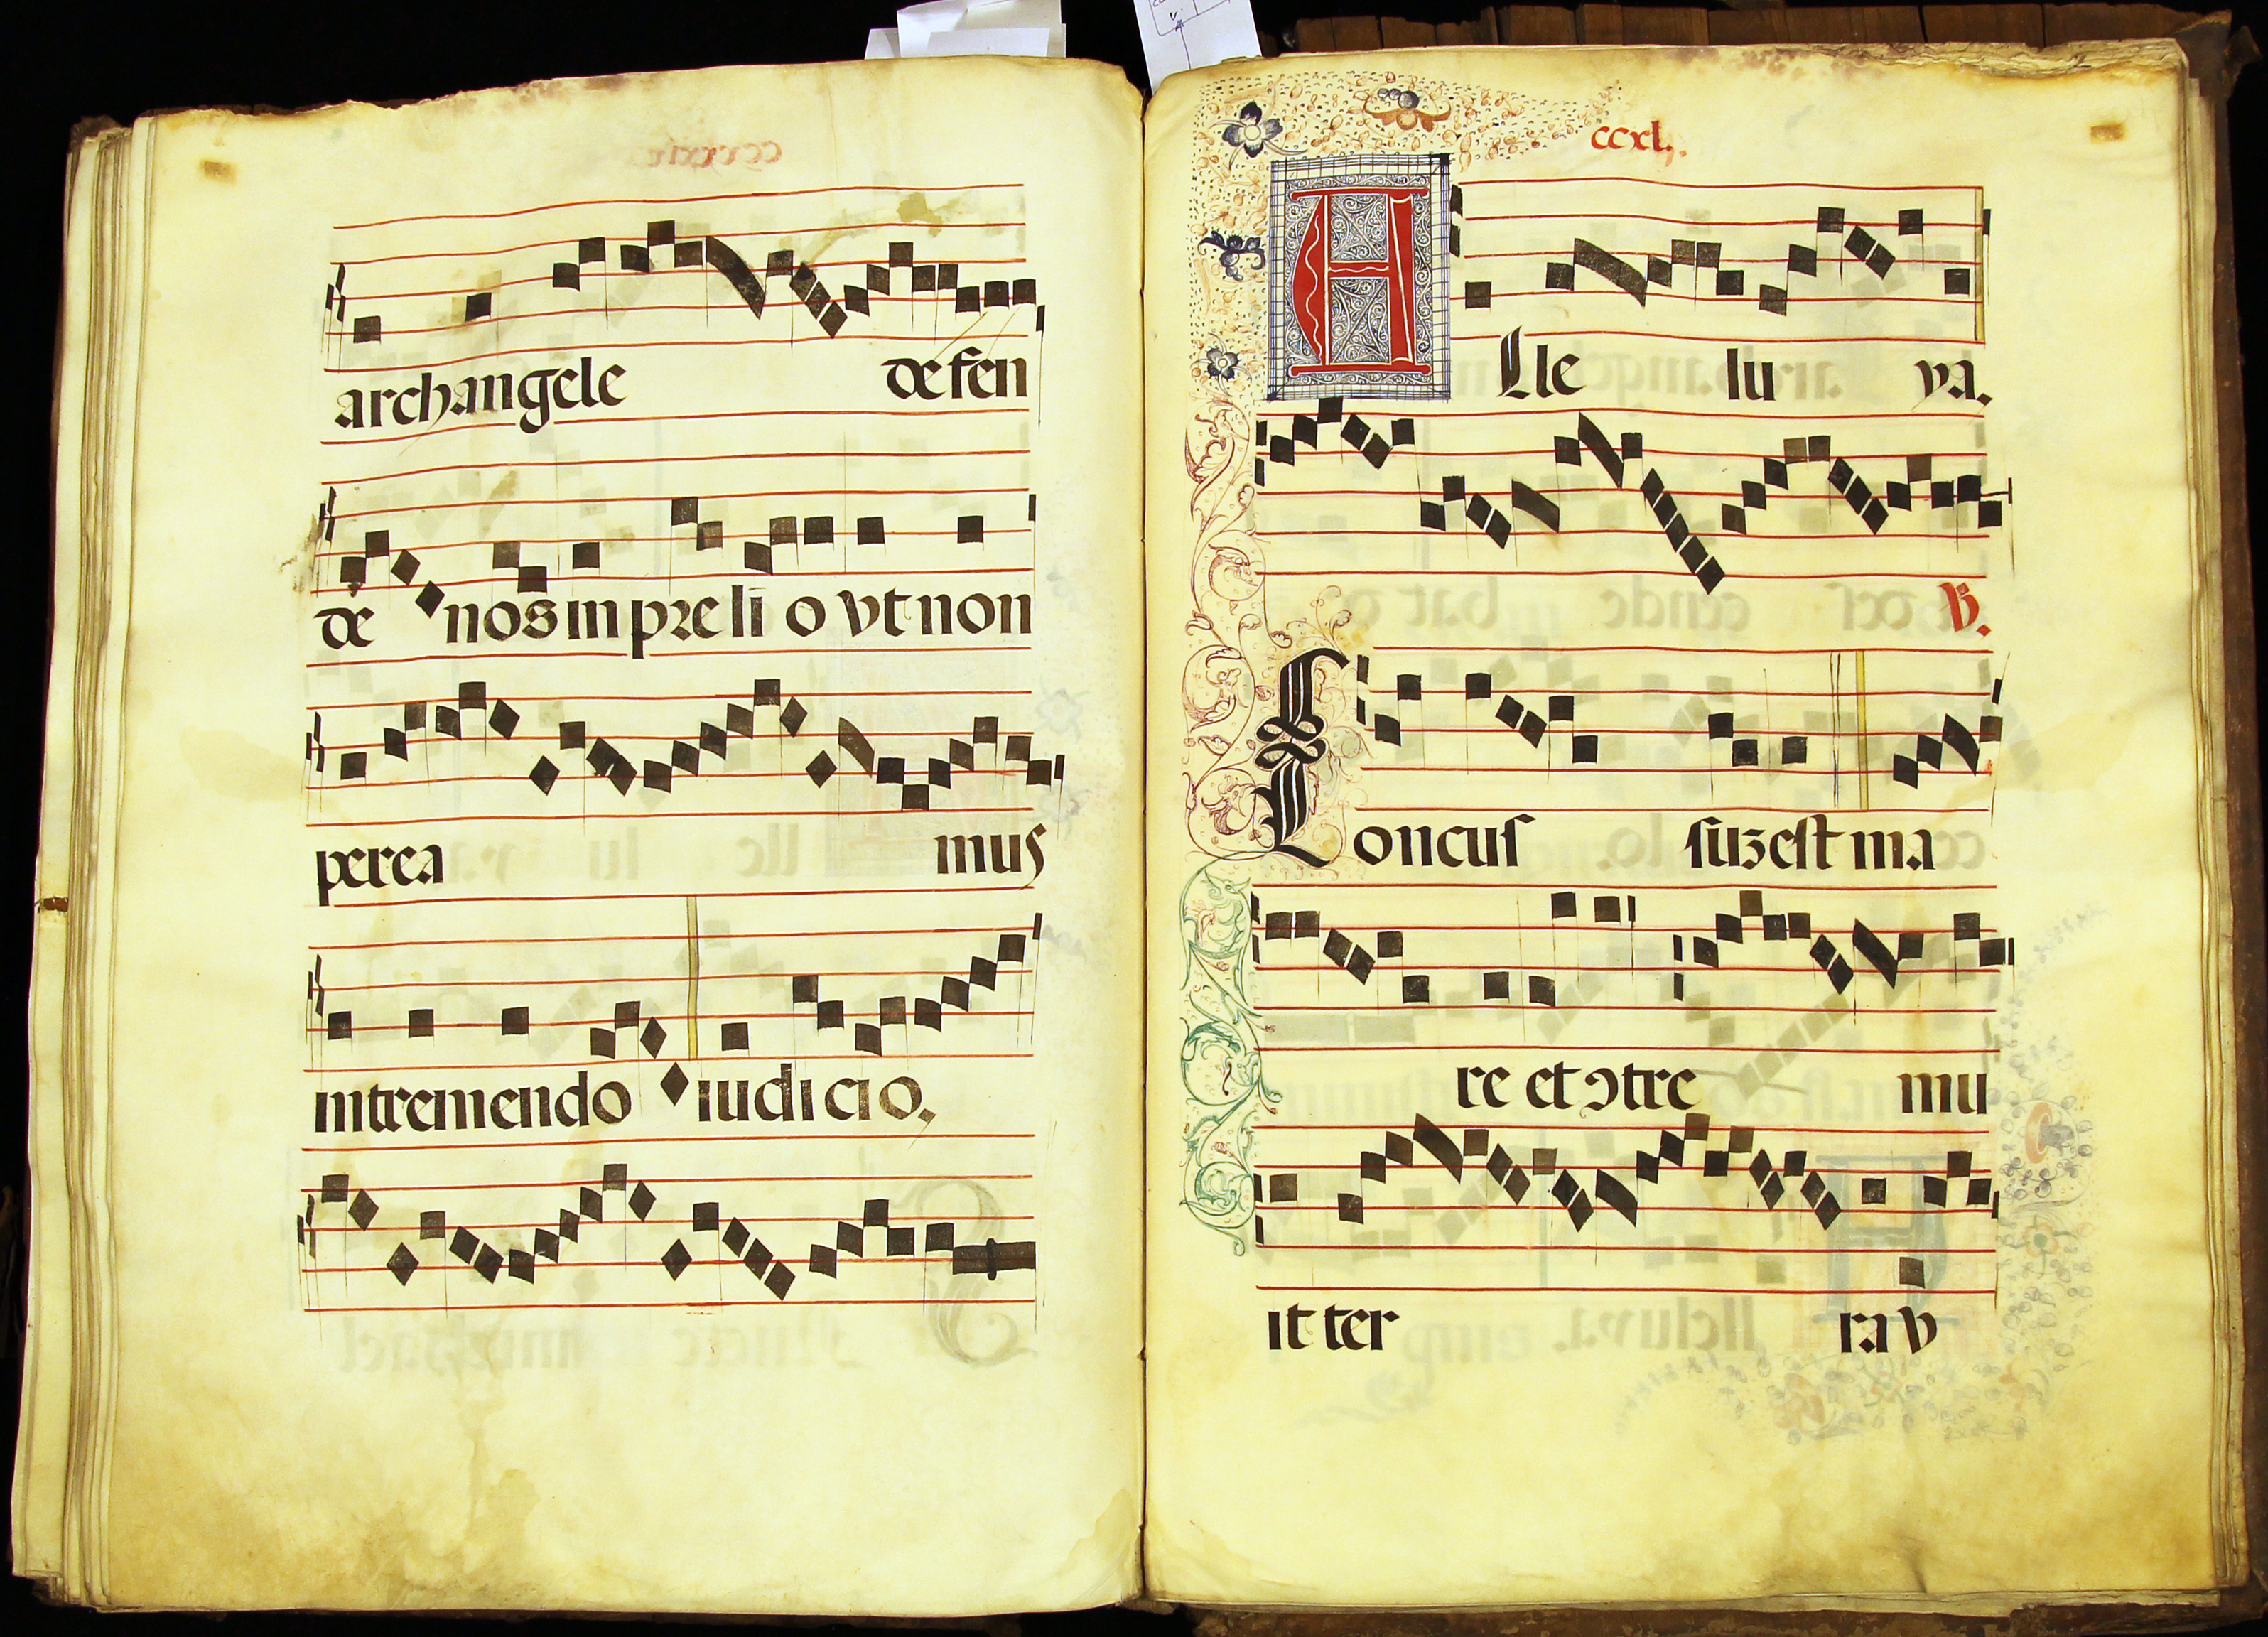 archangele defen
de nos in preli o vt non
perea mus
intremendo iudicio.
ccxl.
Alle lu ya.
V.
Concus suzest ma
re et ɔtre mu
it ter ra v